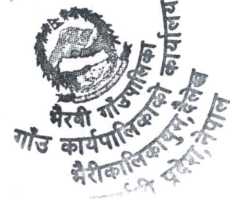 भैरवी गाउँपालिका
गाउँ कार्यपालिकाको कार्यालय
भैरीकालिकाथुम, दैलेख
प्रदेश, नेपाल